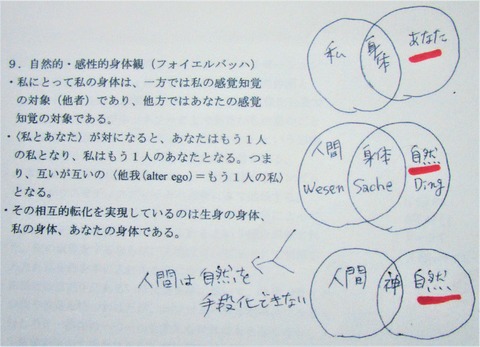 9．自然的・感性的身体観（フォイエルバッハ）
・私にとって私の身体は、一方では私の感覚知覚
の対象（他者）であり、他方ではあなたの感覚
知覚の対象である。
・〈私とあなた〉が対になると、あなたはもう１人
の私となり、私はもう１人のあなたとなる。つま
り、互いが互いの〈他我(alter ego)＝もう１人の私〉
となる。
・その相互的転化を実現しているのは生身の身体、
私の身体、あなたの身体である。
人間は自然を
手段化できない
私 身体 あなた
人間 身体 自然
Wesen Sache Ding
人間 神 自然